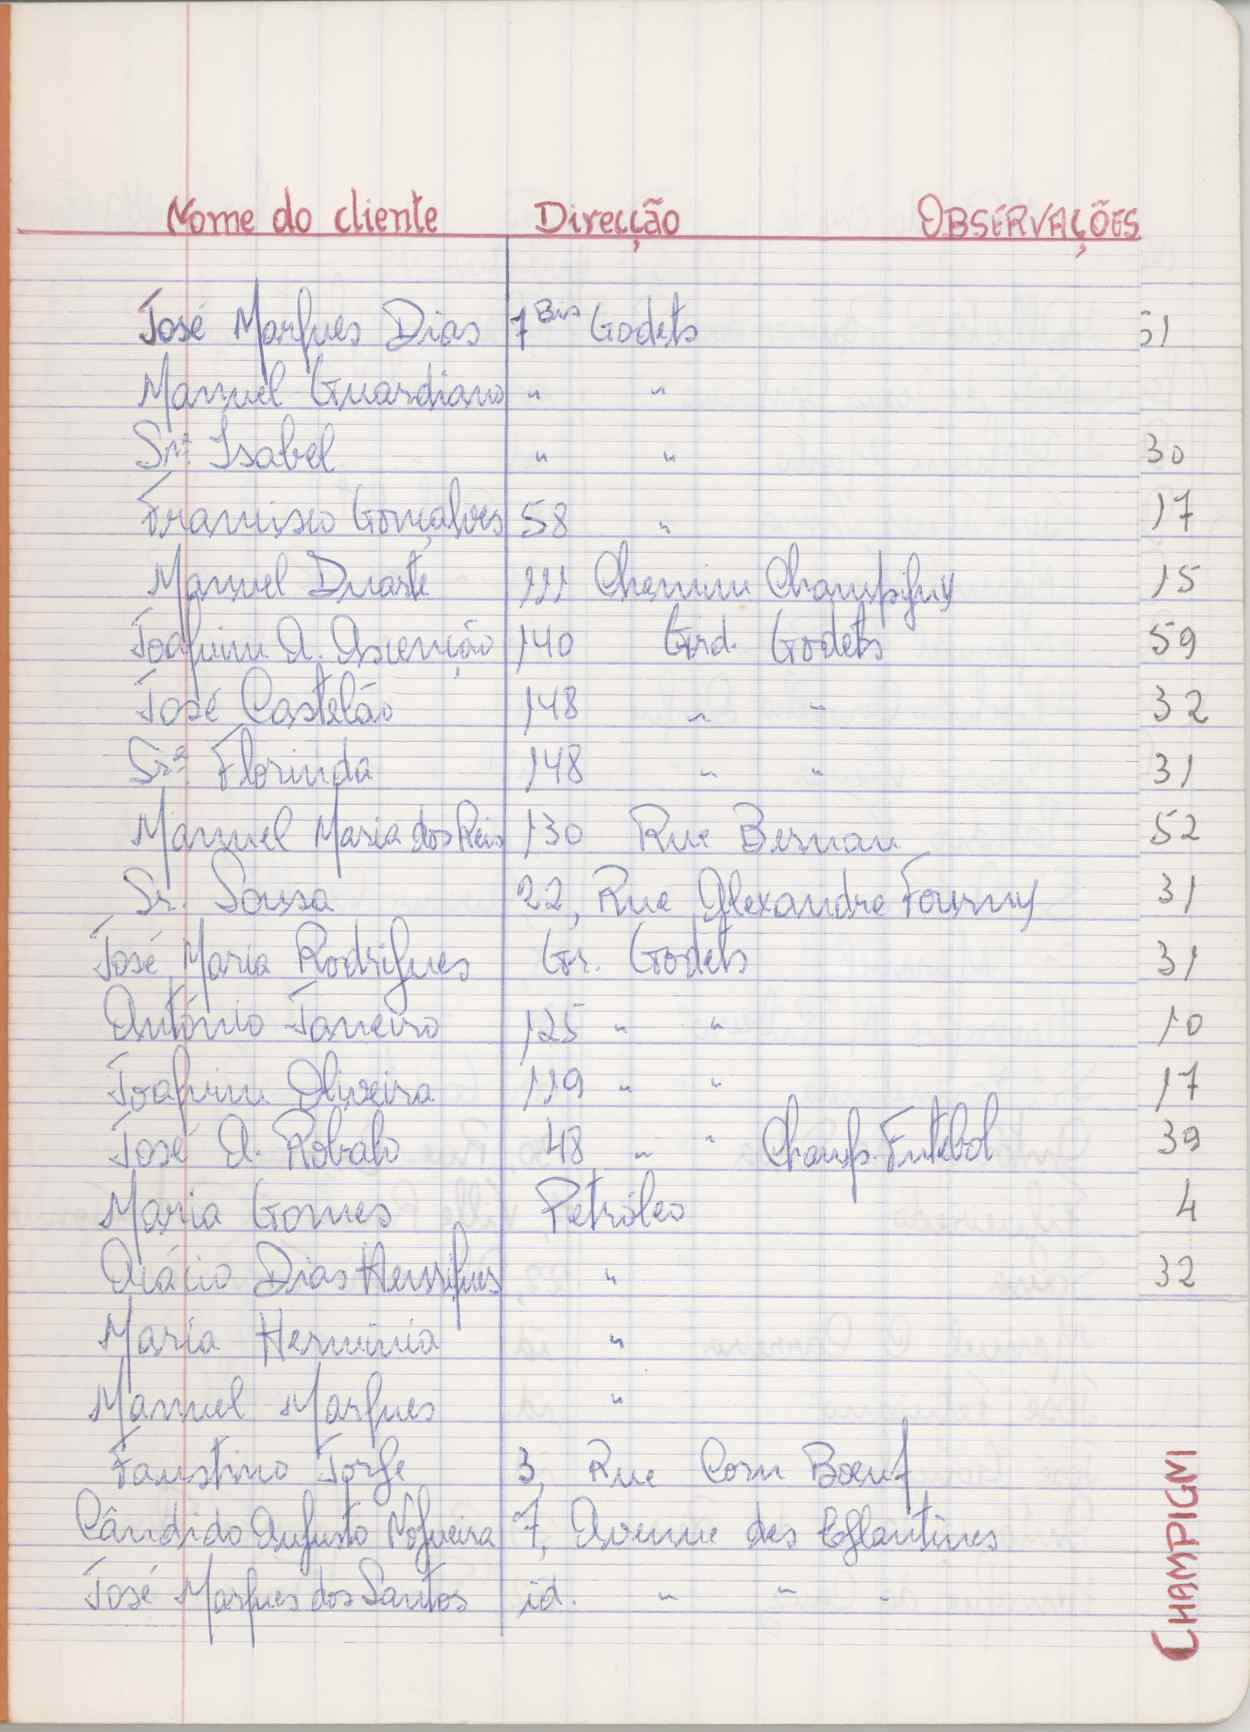 Nome do cliente Direcção OBSERVAÇÕES
José Marques Dias 7 Bis Godets 51
Manuel Guardiano " "
Srª Isabel " " 30
Francisco Gonçalves 58 " 17
Manuel Duarte 111 Chemin Champigny 15
Joaquim A. Ascenção 140 Grd. Godets 59
José Castelão 148 " " 32
Srª Florinda 148 " " 31
Manuel Maria dos Reis 130 Rue Bernau 52
Sr. Sousa 22, Rue Alexandre Fourny 31
José Maria Rodrigues Gr. Godets 31
António Janeiro 125 " " 10
Joaquim Oliveira 119 " " 17
José A. Robalo 48 " " Champ. Futebol 39
Maria Gomes Petróleo 4
Acácio Dias Henriques " 32
Maria Herminia "
Manuel Marques "
Faustino Jorge 3, Rue Corn Boeuf
Cândido Augusto Nogueira 7, Avenue des Eglantines
José Marques dos Santos id. " " "
CHAMPIGNI